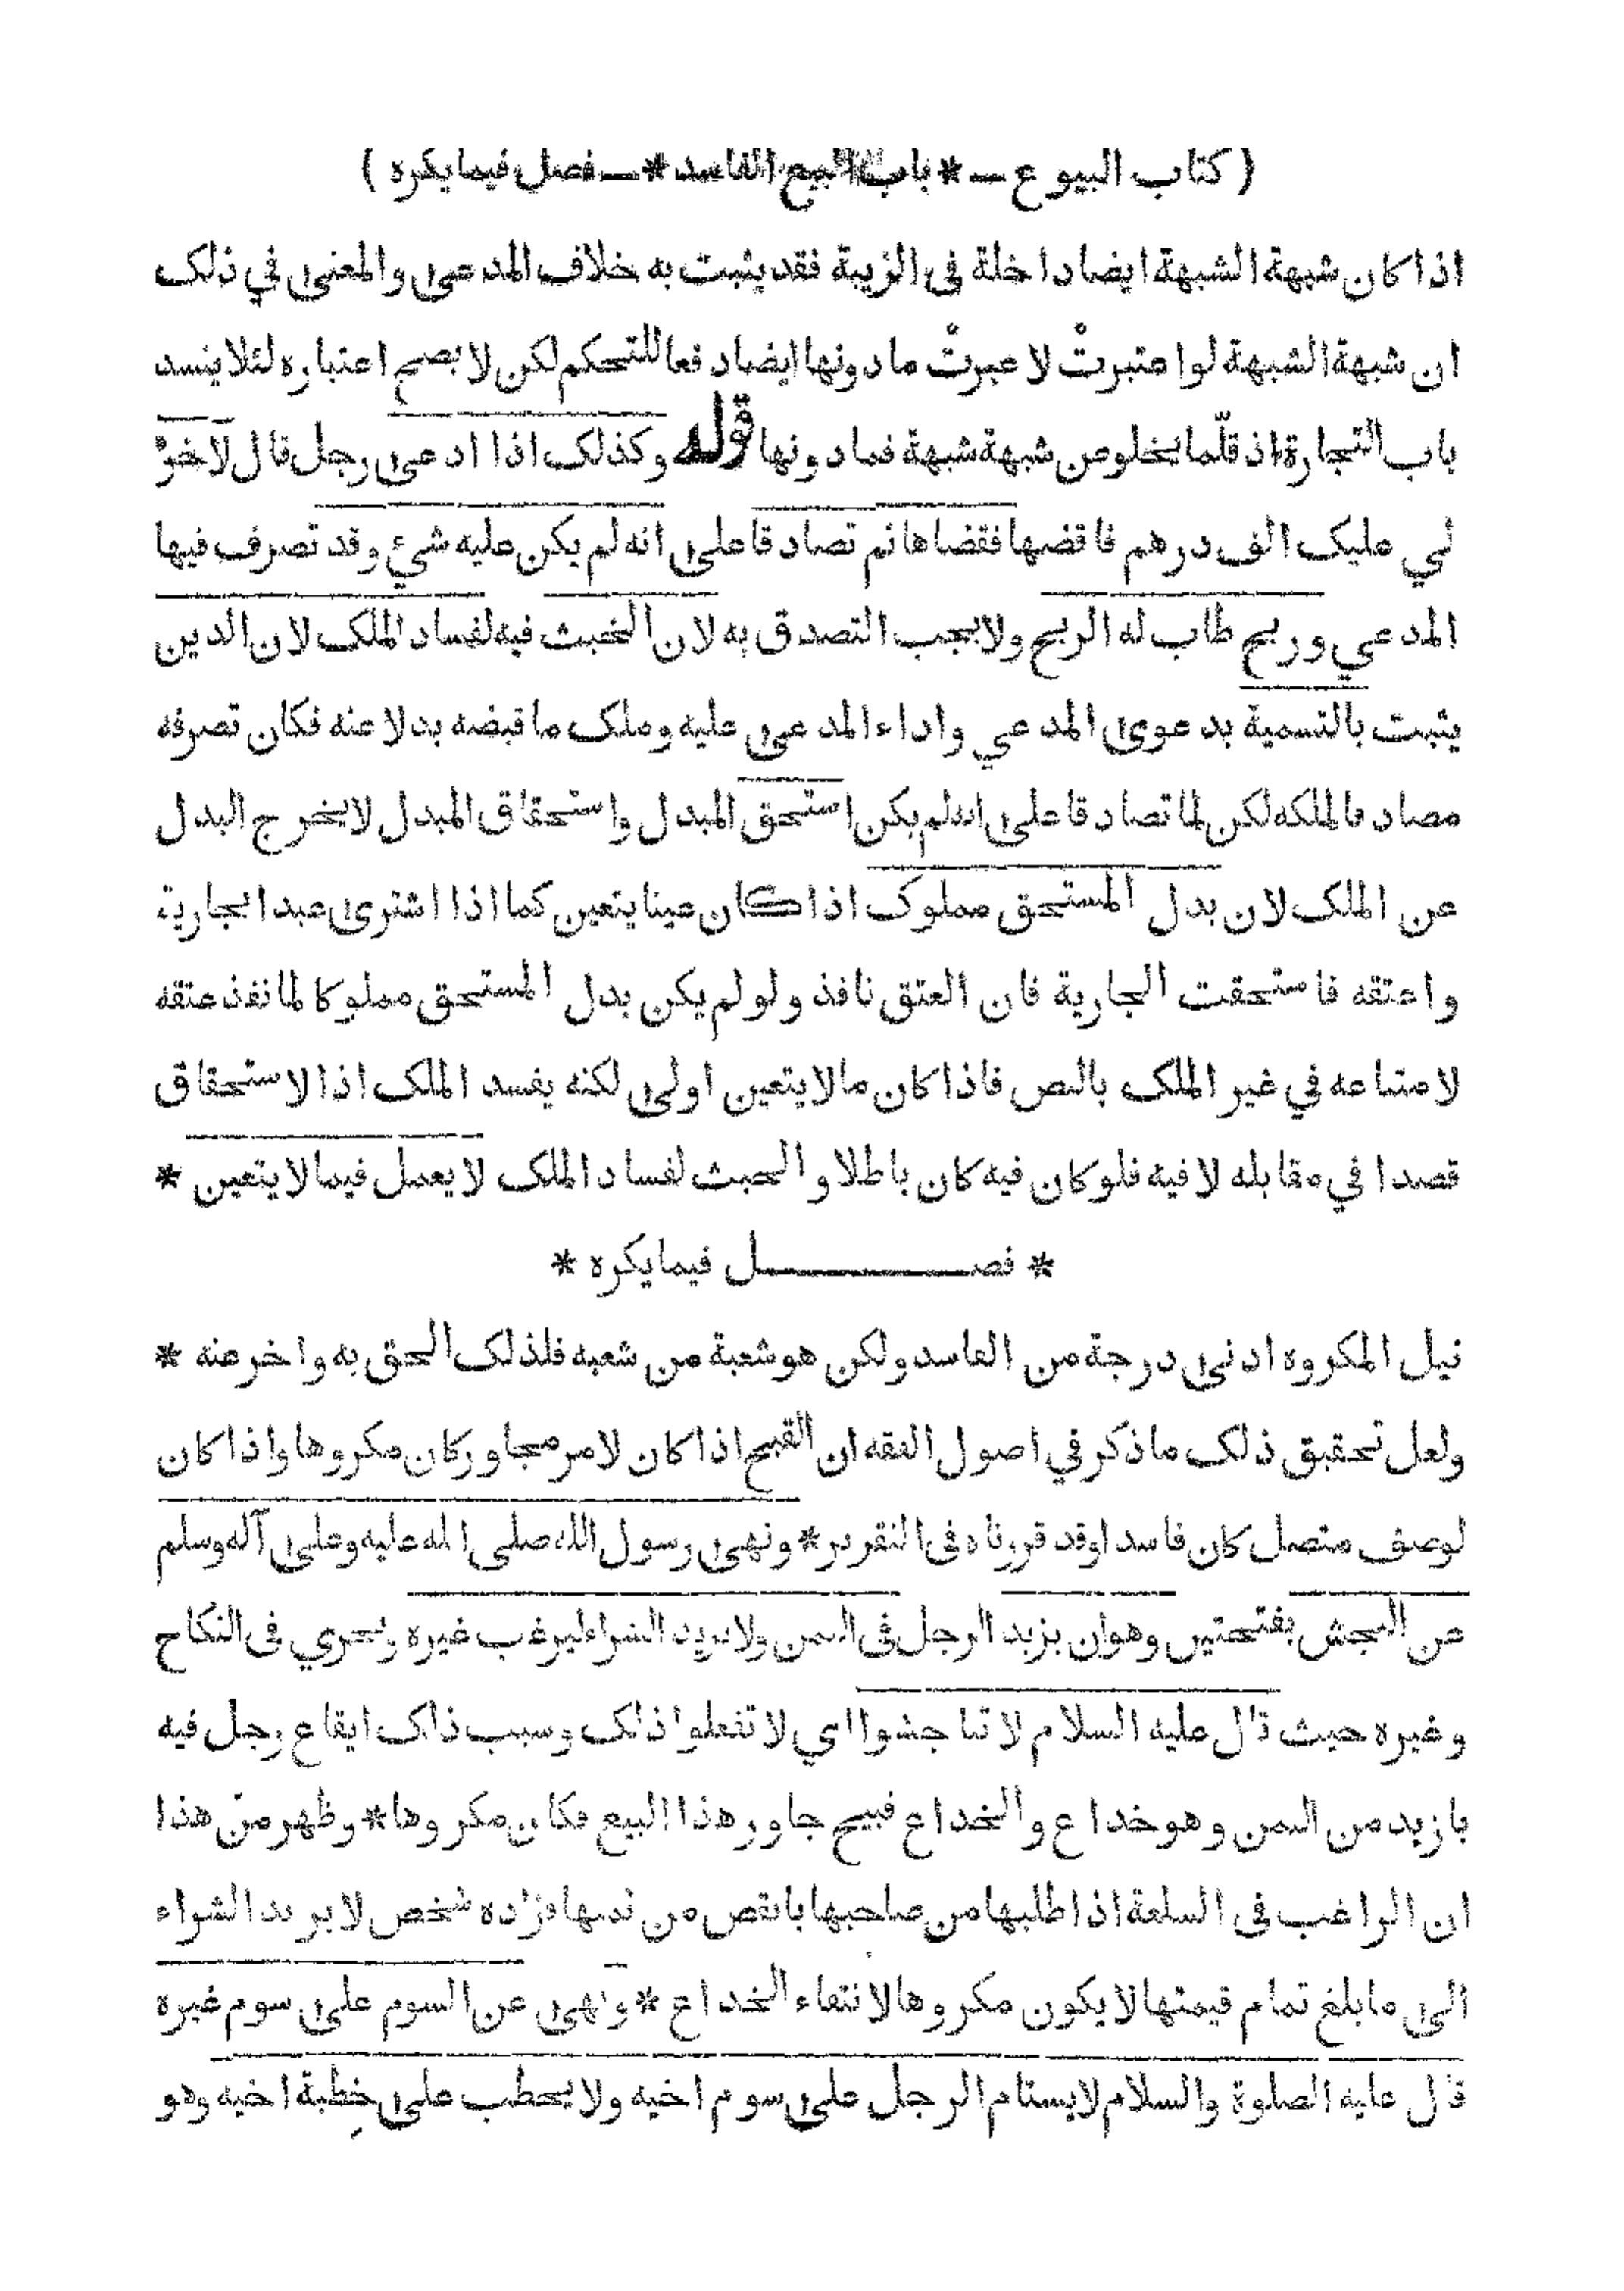 ( كتاب البيوع — * باب البيع الفاسد * — فصل فيما يكره )
اذا كان شبهة الشبهة ايضا داخلة فى الريبة فقد يثبت به خلاف المدعى والمعنى في ذلك
ان شبهة الشبهة لو اعتبرت لاعبرت ما دونها ايضا دفعا للتحكم لكن لا يصح اعتباره لئلا ينسد
باب التجارة اذ قلّما يخلو عن شبهة شبهة فما دونها قوله وكذلك اذا ادعى رجل قال لآخر
لي عليك الف درهم فاقضها فقضاها ثم تصادقا على انه لم يكن عليه شيء وقد تصرف فيها
المدعي وربح طاب له الربح ولا يجب التصدق به لان الخبث فيه لفساد الملك لان الدين
يثبت بالتسمية بدعوى المدعي واداء المدعى عليه وملك ما قبضه بدلا عنه فكان تصرفه
مصادفا لملكه لكن لما تصادقا على انه لم يكن استحق المبدل واستحقاق المبدل لا يخرج البدل
عن الملك لان بدل المستحق مملوك اذا كان عينا يتعين كما اذا اشترى عبدا بجارية
واعتقه فاستحقت الجارية فان العتق نافذ ولو لم يكن بدل المستحق مملوكا لما نفذ عتقه
لامتناعه في غير الملك بالنص فاذا كان مالا يتعين اولى لكنه يفسد الملك اذ الاستحقاق
قصدا في مقابله لا فيه فلو كان فيه كان باطلا والخبث لفساد الملك لا يعمل فيما لا يتعين *
* فصل فيما يكره *
قيل المكروه ادنى درجة من الفاسد ولكن هو شعبة من شعبه فلذلك الحق به واخر عنه *
ولعل تحقيق ذلك ما ذكر في اصول الفقه ان القبح اذا كان لامر مجاور كان مكروها واذا كان
لوصف متصل كان فاسدا وقد قررناه فى التقرير * ونهى رسول الله صلى الله عليه وعلى آله وسلم
عن النجش بفتحتين وهو ان يزيد الرجل فى الثمن ولا يريد الشرا ليرغب غيره ويجري فى النكاح
وغيره حيث قال عليه السلام لا تناجشوا اي لا تفعلوا ذلك وسبب ذاك ايقاع رجل فيه
بازيد من الثمن وهو خداع والخداع قبيح جاور هذا البيع فكان مكروها * وظهر من هذا
ان الراغب فى السلعة اذا طلبها من صاحبها بانقص من ثمنها فزاده شخص لا يريد الشراء
الى ما بلغ تمام قيمتها لا يكون مكروها لانتفاء الخداع * ونهى عن السوم على سوم غيره
قال عليه الصلوة والسلام لا يستام الرجل على سوم اخيه ولا يخطب على خِطبة اخيه وهو